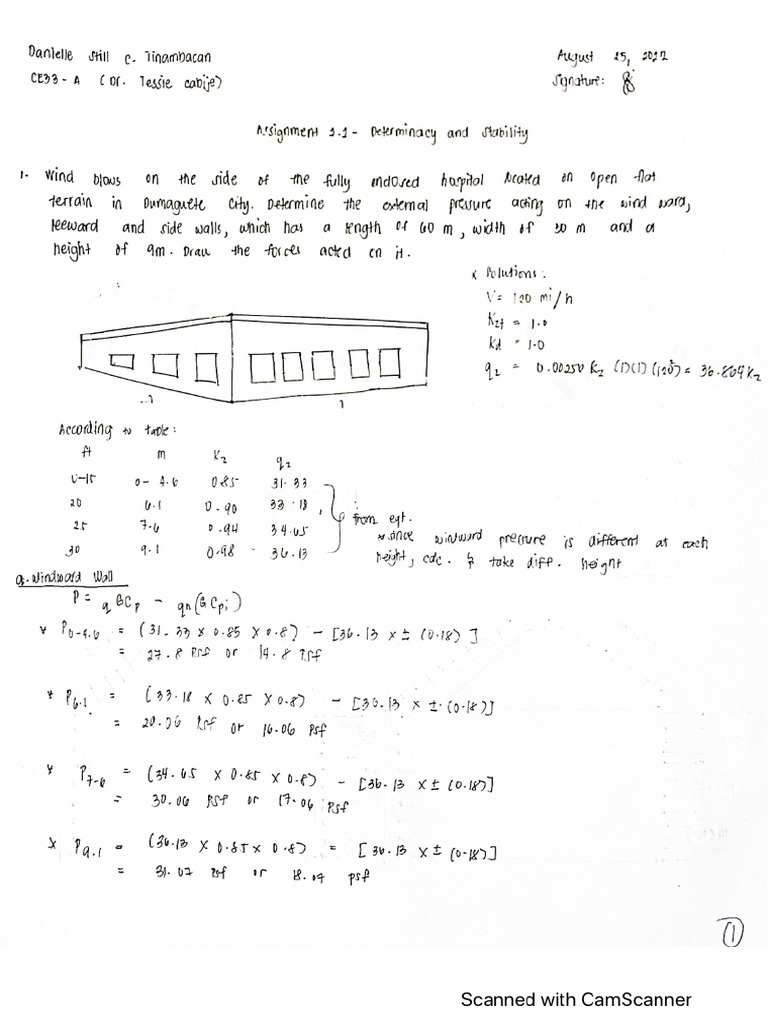 Danielle Still C. Tinambacan
August 25, 2022
CE33 - A ( Dr. Tessie Cabije)
Signature:
Assignment 1.1 - Determinacy and Stability
1. Wind blows on the side of the fully enclosed hospital located on open flat
terrain in Dumaguete City. Determine the external pressure acting on the wind ward,
leeward and side walls, which has a length of 60 m, width of 30 m and a
height of 9m. Draw the forces acted on it.
* Solutions:
V = 120 mi/h
Kzt = 1.0
Kd = 1.0
qz = 0.00256 Kz (1)(1)(120²) = 36.864 Kz
According to table:
ft m Kz qz
0-15 0-4.6 0.85 31.33
20 6.1 0.90 33.18
25 7.6 0.94 34.65
30 9.1 0.98 36.13
from eqt.
* since windward pressure is different at each
height, calc. & take diff. height
a. Windward Wall
P = qGCp - qh(GCpi)
* P0-4.6 = (31.33 x 0.85 x 0.8) - [36.13 x ± (0.18)]
= 27.8 Psf or 14.8 Psf
* P6.1 = (33.18 x 0.85 x 0.8) - [36.13 x ± (0.18)]
= 29.06 Psf or 16.06 Psf
* P7.6 = (34.65 x 0.85 x 0.8) - [36.13 x ± (0.18)]
= 30.06 Psf or 17.06 Psf
* P9.1 = (36.13 x 0.85 x 0.8) = [36.13 x ± (0.18)]
= 31.07 Psf or 18.07 psf
1
Scanned with CamScanner